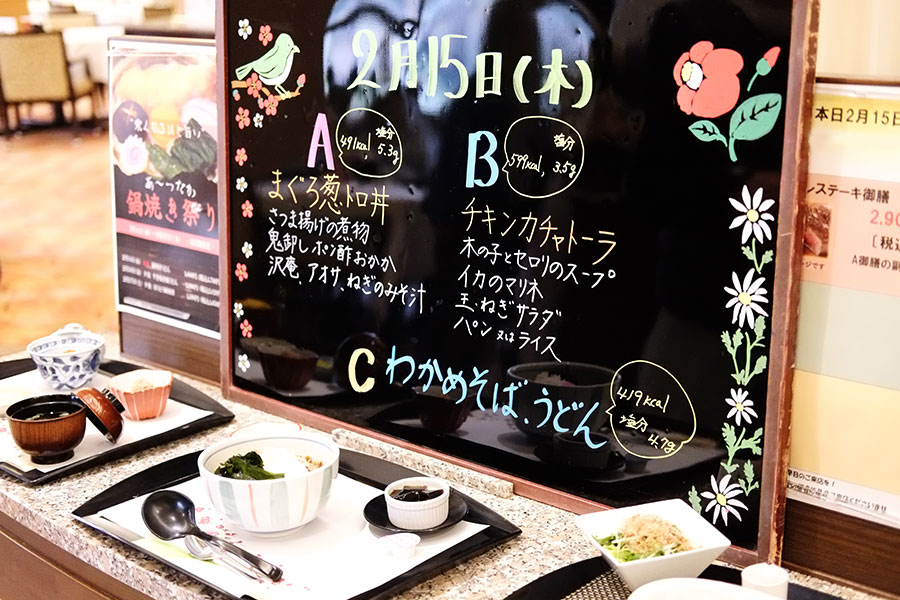 2月15日(木)
A
491kcal, 塩分 5.3g
まぐろ葱トロ丼
さつま揚げの煮物
鬼卸しポン酢おかか
沢庵、アオサ、ねぎのみそ汁
B
599kcal, 塩分 3.5g
チキンカチャトーラ
木の子とセロリのスープ
イカのマリネ
玉ねぎサラダ
パン又はライス
C わかめそば、うどん
419kcal
塩分 4.7g
あ〜つなわ
鍋焼き祭り
本日2月15日
ステーキ御膳
2,90
[税込
A御膳の副